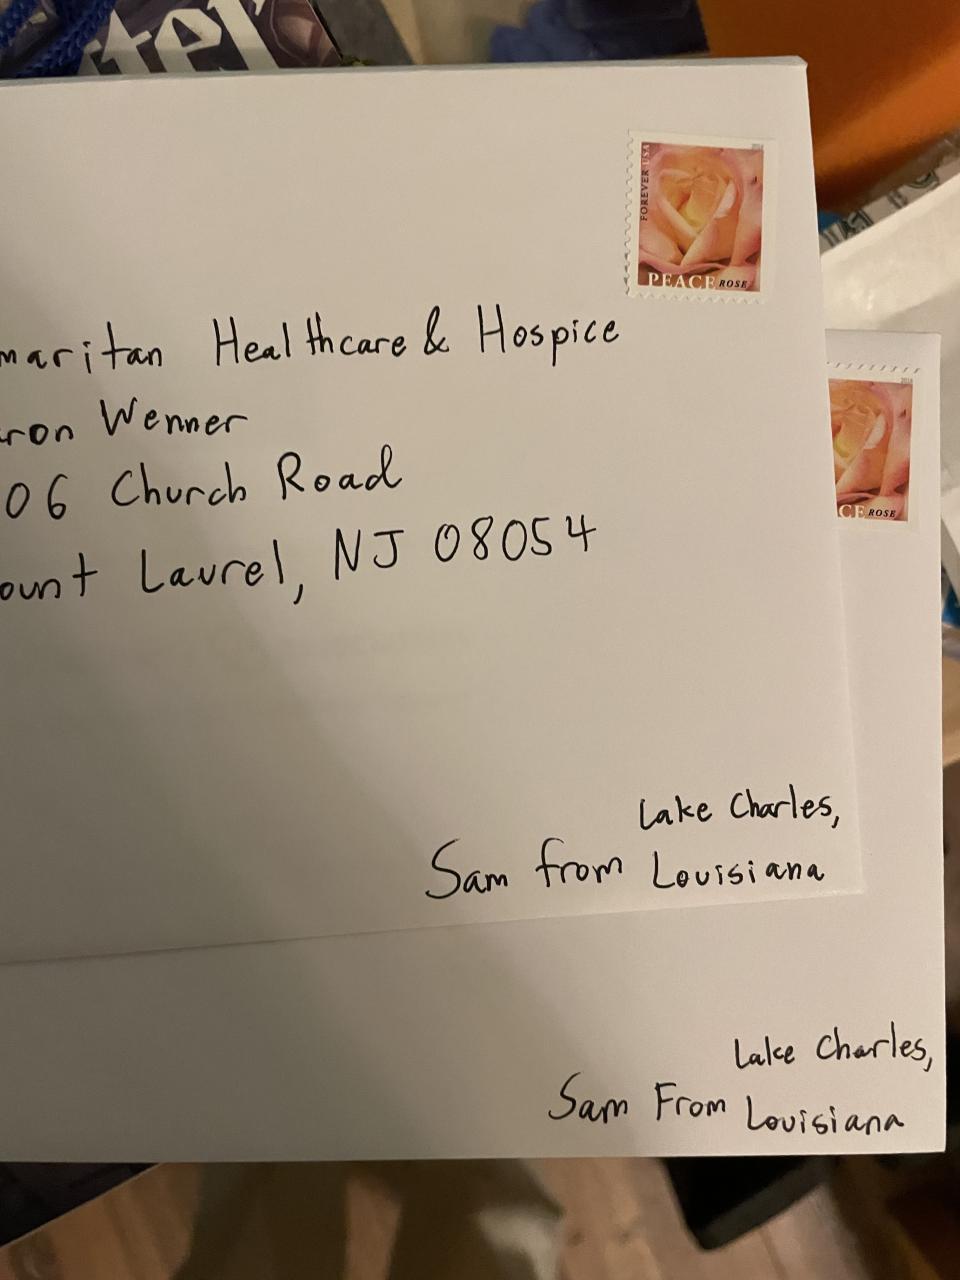 tel
FOREVER USA
PEACE ROSE
maritan Healthcare & Hospice
ron Wenner
06 Church Road
ount Laurel, NJ 08054
Lake Charles,
Sam from Louisiana
CE ROSE
Lake Charles,
Sam From Louisiana